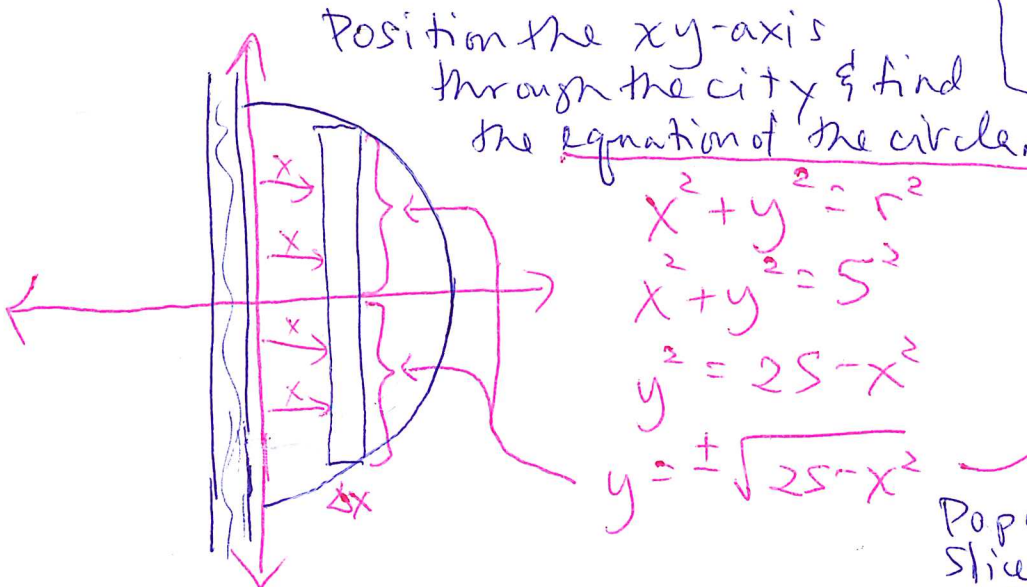 Position the xy-axis
through the city & find
the equation of the circle.
x² + y² = r²
x² + y² = 5²
y² = 25 - x²
y = ± √25-x²
x
x
x
x
Δx
Slice